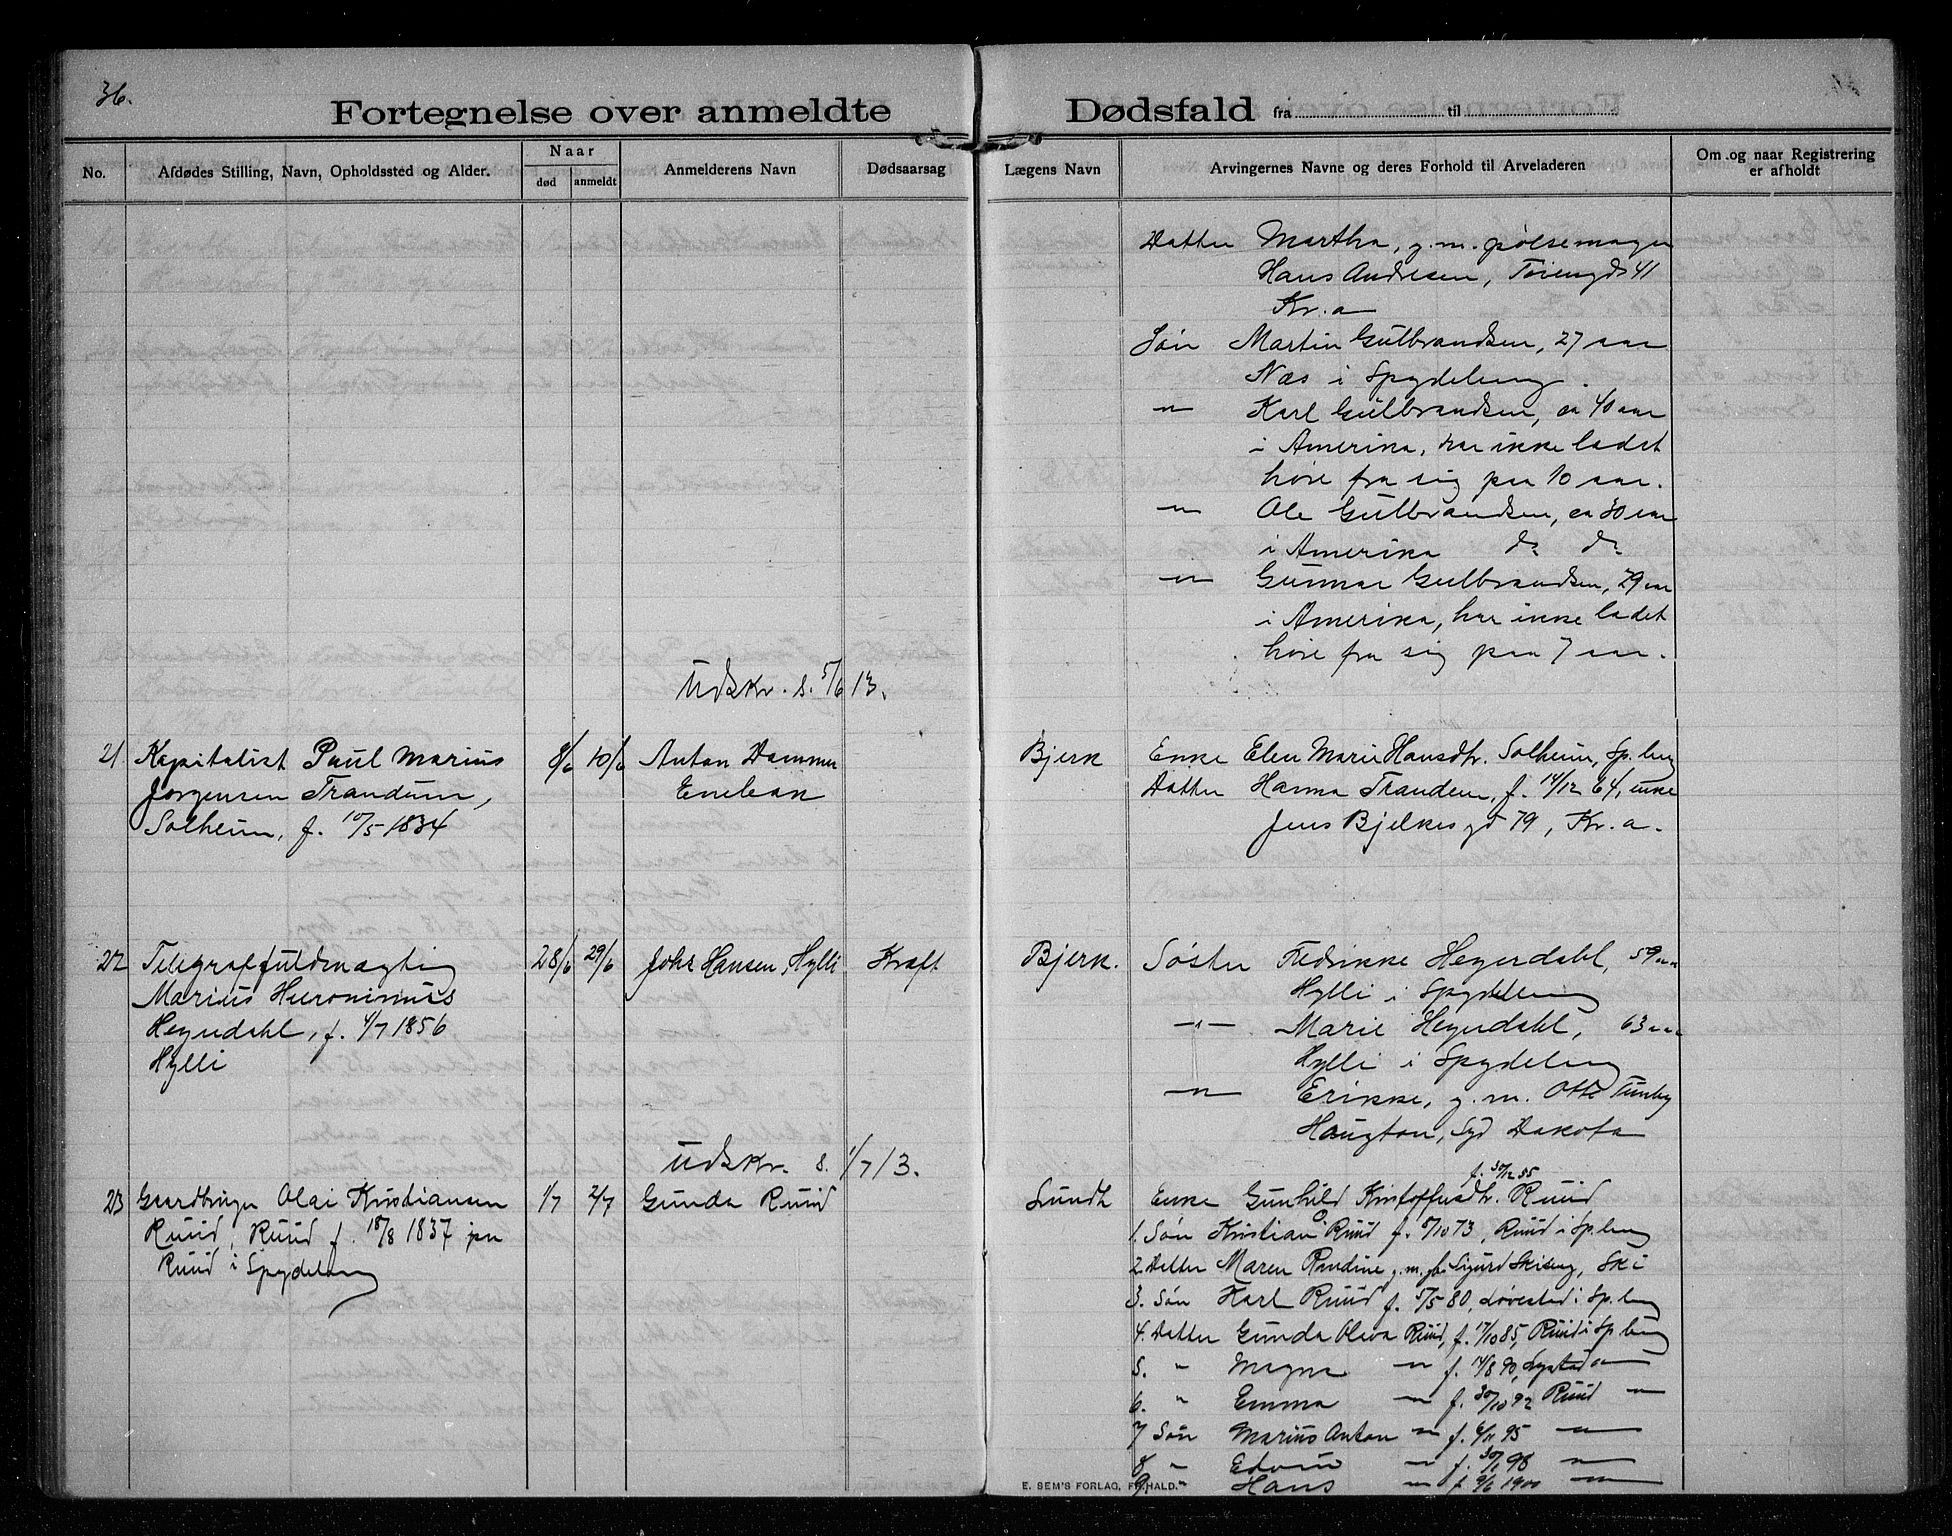 36.
Fortegnelse over anmeldte Dødsfald fra til
No.
Afdødes Stilling, Navn, Opholdssted og Alder.
Naar
død
anmeldt
Anmelderens Navn
Dødsaarsag
Lægens Navn
Arvingernes Navne og deres Forhold til Arveladeren
Om og naar Registrering
er afholdt
Datter Martha, g. m. pølsemager
Hans Andresen, Tøiengd 41
Kr.a
Søn Martin Gulbrandsen, 27 aar
Næs i Spydeberg.
" Karl Gulbrandsen, ca 40 aar
i Amerika, har ikke ladet
høre fra sig paa 10 aar.
" Ole Gulbrandsen, ca 30 aar
i Amerika do do
" Gunnar Gulbrandsen, 29 aar
i Amerika, har ikke ladet
høre fra sig paa 7 aar.
Udskr. s. 5/6 13.
21. Kapitalist Paul Marius 8/6 10/6 Anton Hammer Bjerk Enke Elen Marie Hansdtr. Solheim, Sp.berg
Jørgensen Trandum, Enebak Datter Hanna Trandem, f. 14/12 64, enke
Solheim, f. 10/5 1834 Jens Bjelkesgd 79, Kr.a.
22 Telegraffuldmægtig 28/6 29/6 Johs Hansen, Hylli Kræft Bjerk. Søster Fredrikke Heyerdahl, 59 aar
Marius Hieronimus Hylli i Spydeberg
Heyerdahl, f. 4/7 1856 " Marie Heyerdahl, 63 aar
Hylli Hylli i Spydeberg
" Erikke, g. m. Otto
Haugton, Syd Dakota
Udskr. s. 1/7 13.
f. 30/12 55
23 Gaardbruger Olai Kristiansen 1/7 2/7 Gunda Ruud Lundh Enke Gunhild Kristoffersdtr. Ruud
Ruud, Ruud f. 18/8 1837 paa 1. Søn Kristian O Ruud f. 5/10 73, Ruud i Sp.berg
Ruud i Spydeberg 2. Datter Maren Randine g.m. gbr Sigurd Skiseng, Ski
3. Søn Karl Ruud f. 5/5 80, Løvestad i Sp.berg
4. Datter Gunda Oliva Ruud, f. 17/10 85, Ruud i Sp.berg
5. " Magna " f. 14/8 90, Lystad "
6. " Emma " f. 30/10 92 Ruud "
7 Søn Marius Anton " f. 6/11 95 "
8 " Edvin " f. 30/1 98 "
9. " Hans " f 9/6 1900 "
E. SEM'S FORLAG, FR.HALD.